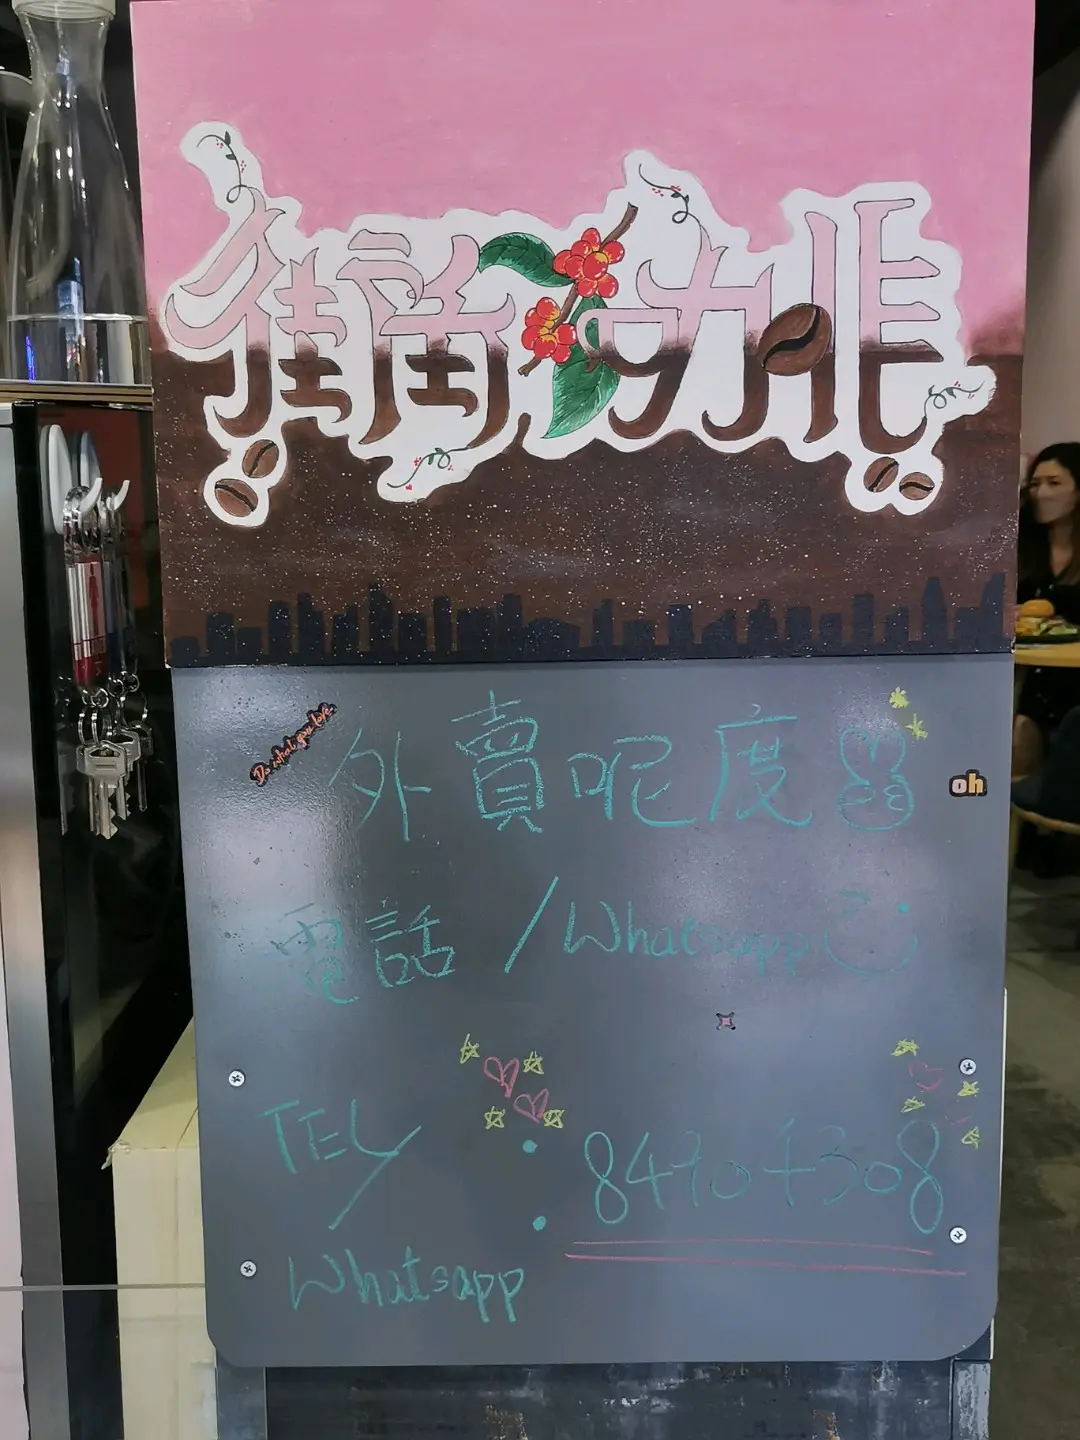 街角咖啡
Do what you love
外賣呢度
oh
電話/Whatsapp
TEL/
Whatsapp
: 84704308